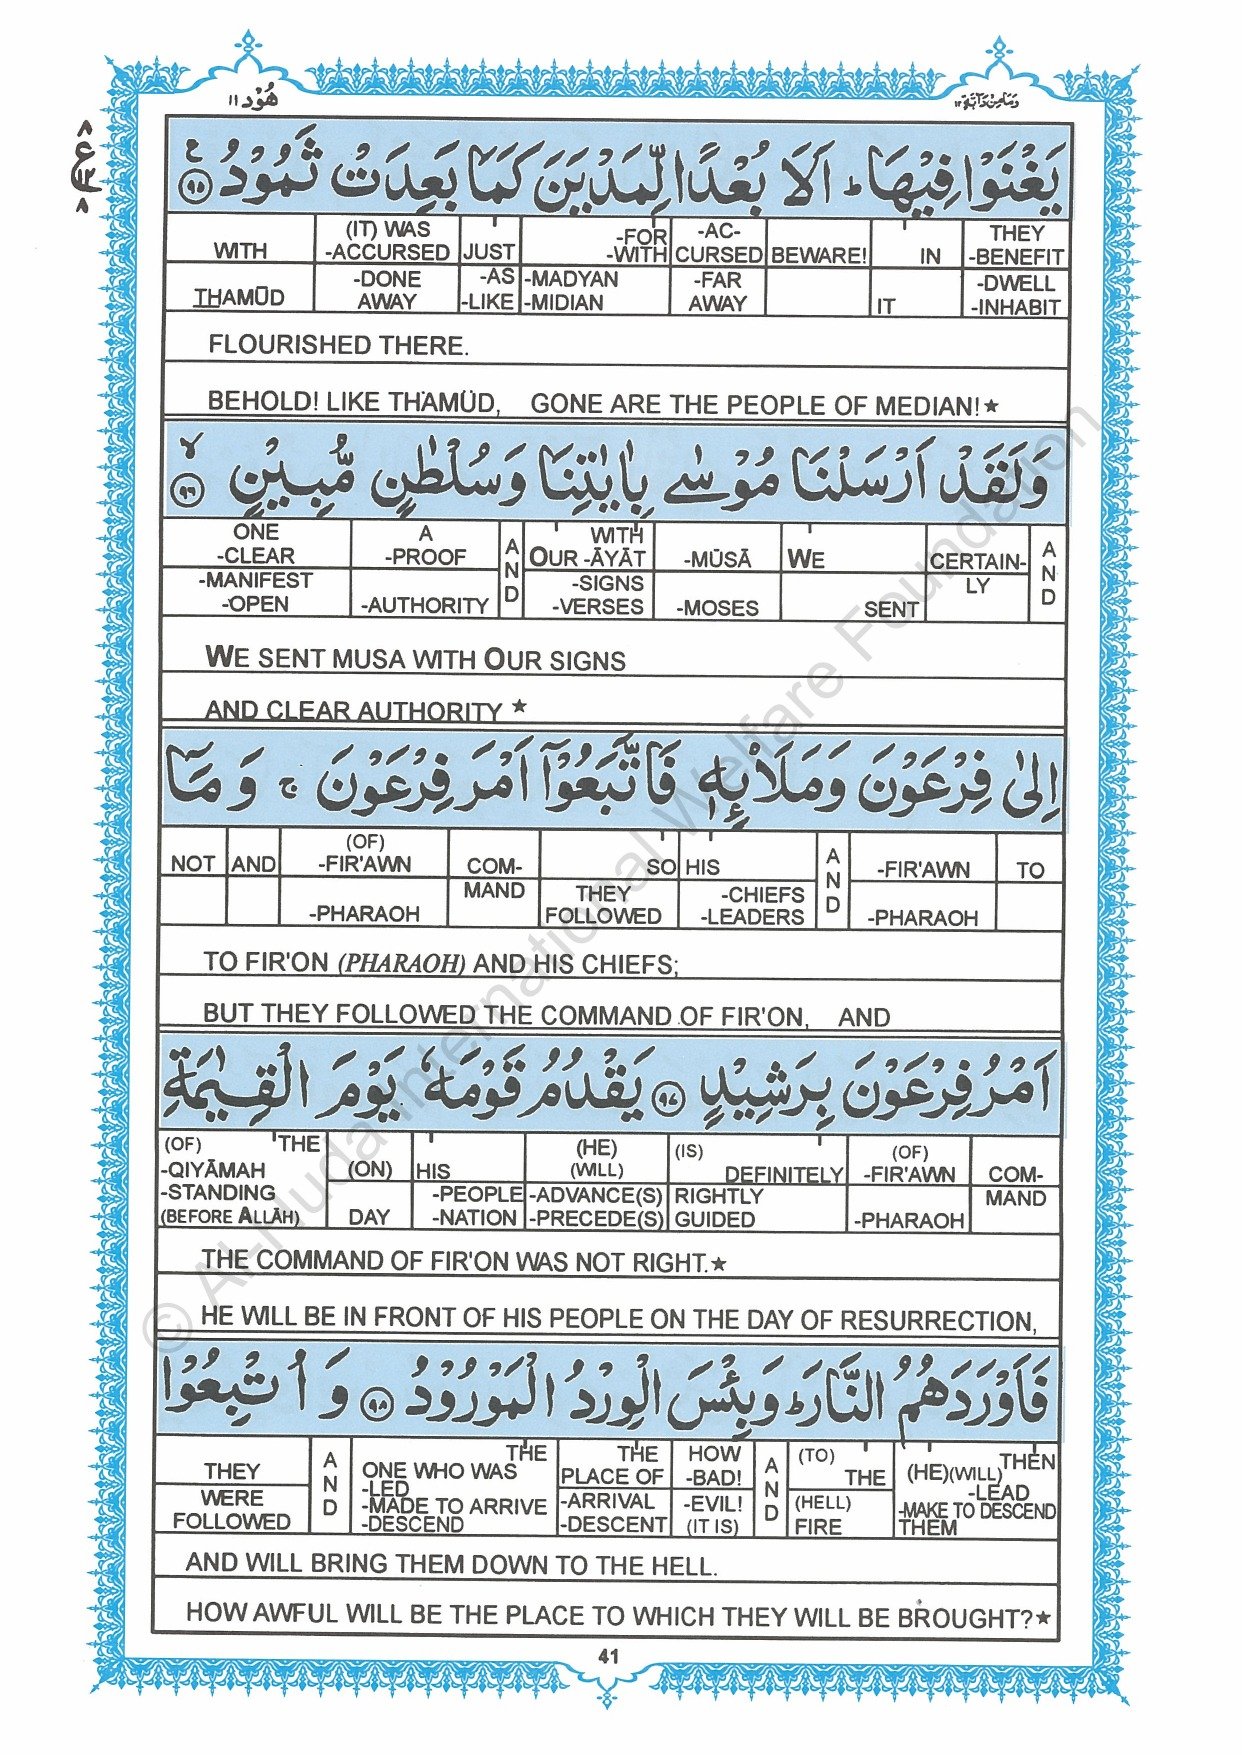 هُوْد ١١
وَمَا مِنْ دَآبَّةٍ ١٢
٨
ع
١٢
٨
يَغْنَوْا فِيْهَا ؕ اَلَا بُعْدًا لِّمَدْيَنَ كَمَا بَعِدَتْ ثَمُوْدُ ۧ ﴿٩٥﴾
WITH (IT) WAS -ACCURSED JUST -FOR -WITH -AC- CURSED BEWARE! IN THEY -BENEFIT
THAMŪD -DONE AWAY -AS -LIKE -MADYAN -MIDIAN -FAR AWAY IT -DWELL -INHABIT
FLOURISHED THERE.
BEHOLD! LIKE THAMŪD, GONE ARE THE PEOPLE OF MEDIAN!★
وَلَقَدْ اَرْسَلْنَا مُوْسٰى بِاٰيٰتِنَا وَسُلْطٰنٍ مُّبِيْنٍ ۙ ﴿٩٦﴾
ONE -CLEAR A -PROOF AND WITH OUR -ĀYĀT -MŪSĀ WE CERTAIN- AND
-MANIFEST -OPEN -AUTHORITY -SIGNS -VERSES -MOSES SENT LY
WE SENT MUSA WITH OUR SIGNS
AND CLEAR AUTHORITY ★
اِلٰى فِرْعَوْنَ وَمَلَاۡئِهٖ فَاتَّبَعُوْٓا اَمْرَ فِرْعَوْنَ ۚ وَمَآ
NOT AND (OF) -FIR'AWN COM- SO HIS AND -FIR'AWN TO
-PHARAOH MAND THEY FOLLOWED -CHIEFS -LEADERS -PHARAOH
TO FIR'ON (PHARAOH) AND HIS CHIEFS;
BUT THEY FOLLOWED THE COMMAND OF FIR'ON, AND
اَمْرُ فِرْعَوْنَ بِرَشِيْدٍ ﴿٩٧﴾ يَقْدُمُ قَوْمَهٗ يَوْمَ الْقِيٰمَةِ
(OF) THE -QIYĀMAH (ON) HIS (HE) (WILL) (IS) DEFINITELY (OF) -FIR'AWN COM-
-STANDING (BEFORE ALLĀH) DAY -PEOPLE -NATION -ADVANCE(S) -PRECEDE(S) RIGHTLY GUIDED -PHARAOH MAND
THE COMMAND OF FIR'ON WAS NOT RIGHT.★
HE WILL BE IN FRONT OF HIS PEOPLE ON THE DAY OF RESURRECTION,
فَاَوْرَدَهُمُ النَّارَ ؕ وَبِئْسَ الْوِرْدُ الْمَوْرُوْدُ ﴿٩٨﴾ وَاُتْبِعُوْا
THEY AND THE ONE WHO WAS -LED THE PLACE OF HOW -BAD! AND (TO) THE THEN (HE)(WILL) -LEAD
WERE FOLLOWED -MADE TO ARRIVE -DESCEND -ARRIVAL -DESCENT -EVIL! (IT IS) (HELL) FIRE -MAKE TO DESCEND THEM
AND WILL BRING THEM DOWN TO THE HELL.
HOW AWFUL WILL BE THE PLACE TO WHICH THEY WILL BE BROUGHT?★
41
© Al-Huda International Welfare Foundation